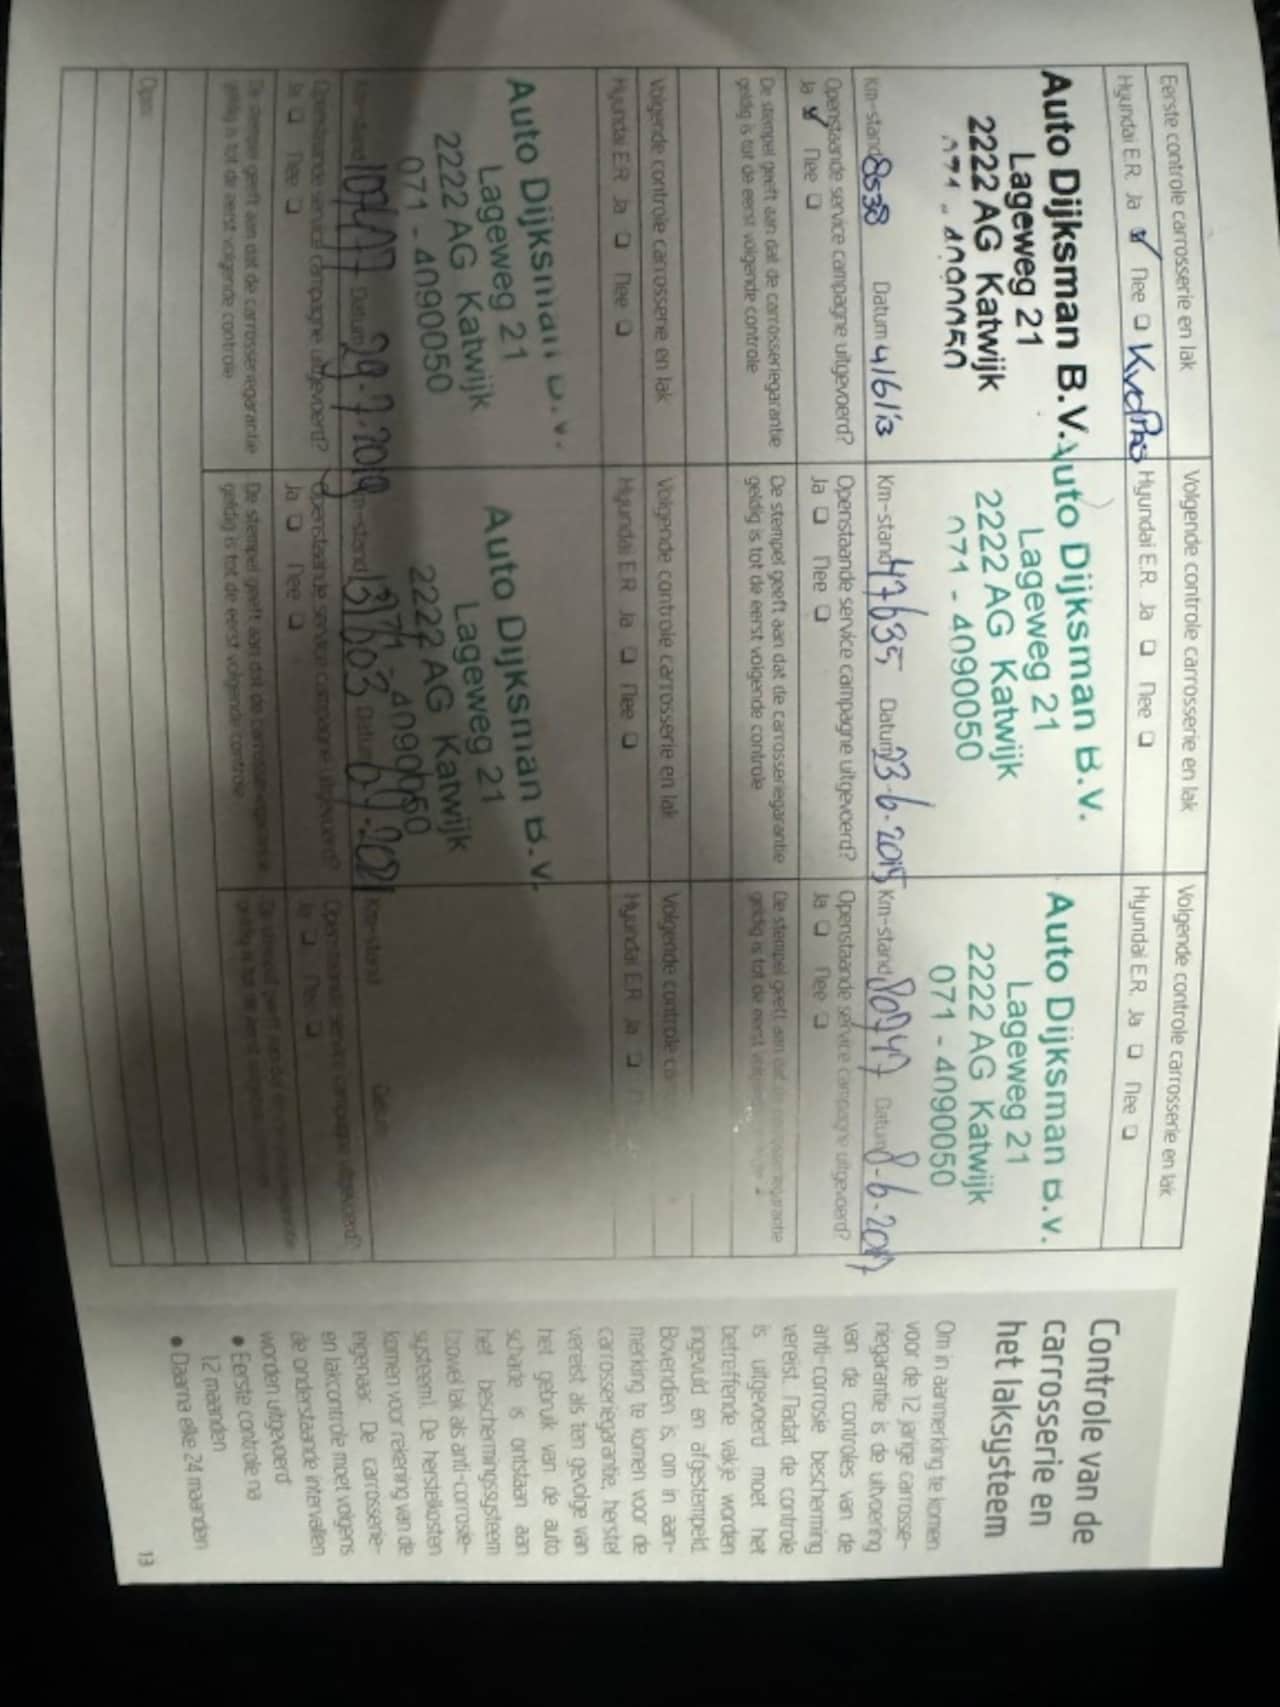 Eerste controle carrosserie en lak
Hyundai E.R. Ja Nee
Auto Dijksman B.V.
Lageweg 21
2222 AG Katwijk
071 - 4090050
Km-stand 8538 Datum 4/6/13
Openstaande service campagne uitgevoerd?
Ja Nee
De stempel geeft aan dat de carrosseriegarantie
geldig is tot de eerst volgende controle
Volgende controle carrosserie en lak
Hyundai E.R. Ja Nee
Auto Dijksman B.V.
Lageweg 21
2222 AG Katwijk
071 - 4090050
Km-stand 47635 Datum 23-6-2015
Openstaande service campagne uitgevoerd?
Ja Nee
De stempel geeft aan dat de carrosseriegarantie
geldig is tot de eerst volgende controle
Volgende controle carrosserie en lak
Hyundai E.R. Ja Nee
Auto Dijksman B.V.
Lageweg 21
2222 AG Katwijk
071 - 4090050
Km-stand Datum 8-6-2017
Openstaande service campagne uitgevoerd?
Ja Nee
De stempel geeft aan dat de carrosseriegarantie
geldig is tot de eerst
Volgende controle carrosserie en lak
Hyundai E.R. Ja Nee
Auto Dijksman B.V.
Lageweg 21
2222 AG Katwijk
071 - 4090050
Km-stand Datum 29-7-2019
Openstaande service campagne uitgevoerd?
Ja Nee
De stempel geeft aan dat de carrosseriegarantie
geldig is tot de eerst volgende controle
Volgende controle carrosserie en lak
Hyundai E.R. Ja Nee
Auto Dijksman B.V.
Lageweg 21
2222 AG Katwijk
071 - 4090050
Km-stand 131603 Datum
Openstaande service campagne uitgevoerd?
Ja Nee
De stempel geeft aan dat de carrosseriegarantie
geldig is tot de eerst volgende controle
Volgende controle
Hyundai E.R. Ja
Km-stand Datum
Openstaande service campagne uitgevoerd?
Ja Nee
Controle van de
carrosserie en
het laksysteem
Om in aanmerking te komen
voor de 12 jarige carrosse-
riegarantie is de uitvoering
van de controles van de
anti-corrosie bescherming
vereist. Nadat de controle
is uitgevoerd moet het
betreffende vakje worden
ingevuld en afgestempeld.
Bovendien is, om in aan-
merking te komen voor de
carrosseriegarantie, herstel
vereist als ten gevolge van
het gebruik van de auto
schade is ontstaan aan
het beschermingssysteem
(zowel lak als anti-corrosie-
systeem). De herstelkosten
komen voor rekening van de
eigenaar. De carrosserie-
en lakcontrole moet volgens
de onderstaande intervallen
worden uitgevoerd
• Eerste controle na
12 maanden
• Daarna elke 24 maanden
13